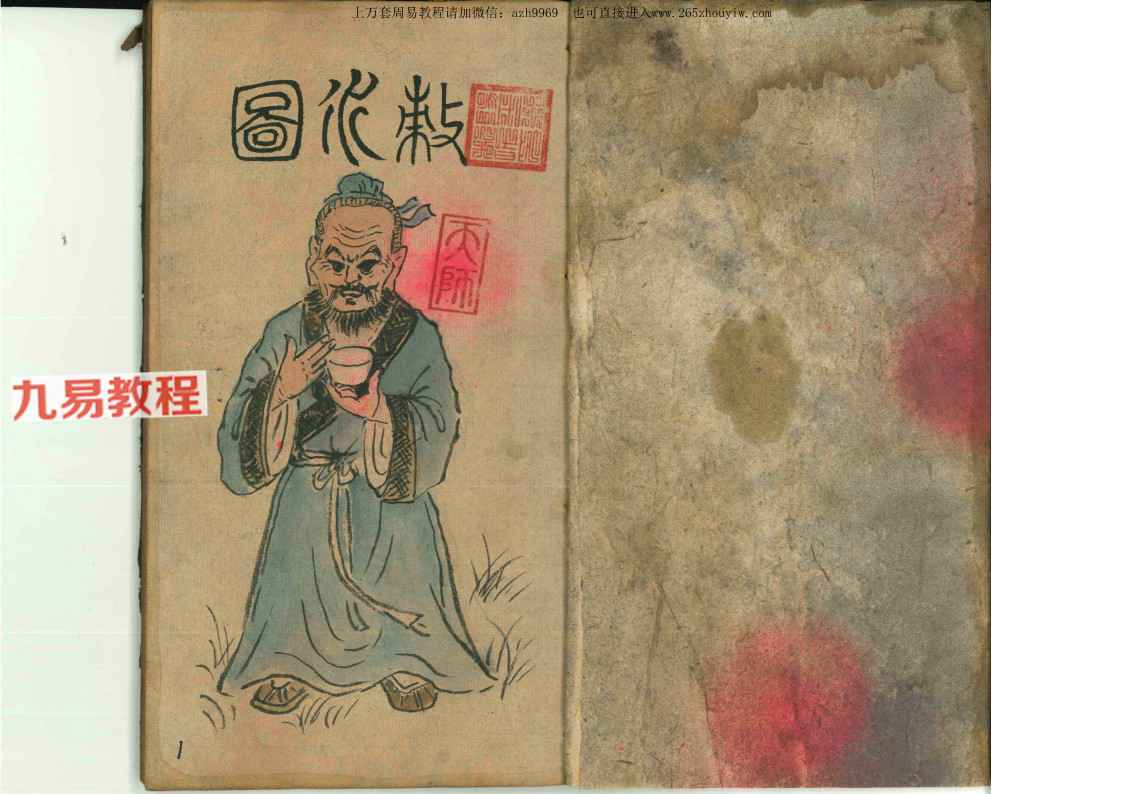 上万套周易教程请加微信：azh9969 也可直接进入www.265zhouyiw.com
敕水圖
天師
九易教程
1